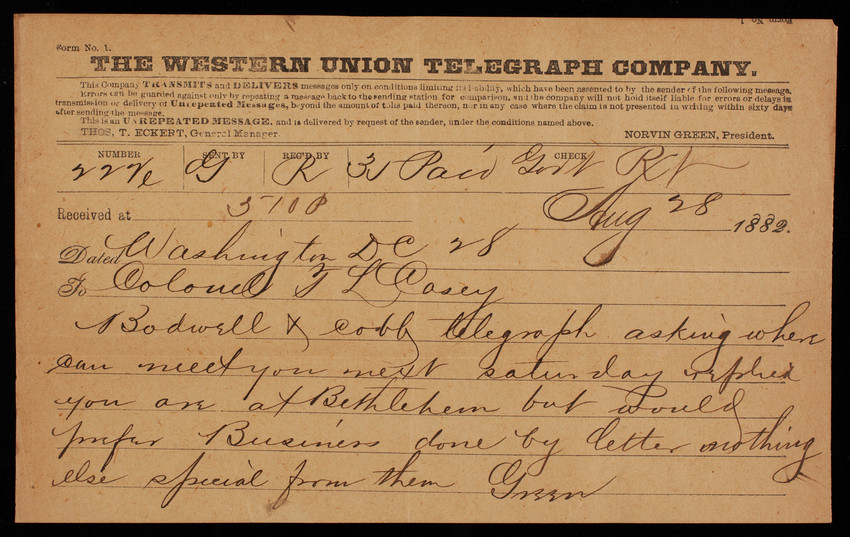 Form No. 1.
Form No. 1.
THE WESTERN UNION TELEGRAPH COMPANY.
This Company TRANSMITS and DELIVERS messages only on conditions limiting its liability, which have been assented to by the sender of the following message.
Errors can be guarded against only by repeating a message back to the sending station for comparison, and the company will not hold itself liable for errors or delays in
transmission or delivery of Unrepeated Messages, beyond the amount of tolls paid thereon, nor in any case where the claim is not presented in writing within sixty days
after sending the message.
This is an UNREPEATED MESSAGE, and is delivered by request of the sender, under the conditions named above.
THOS. T. ECKERT, General Manager. NORVIN GREEN, President.
NUMBER SENT BY REC'D BY CHECK
G R Paid Govt
Received at
Aug 28 1882.
Dated Washington DC 28
To Colonel T L Casey
Bodwell & Cobb telegraph asking where
can meet you next saturday replied
you are at Bethlehem but would
prefer Business done by letter nothing
else special from them Green